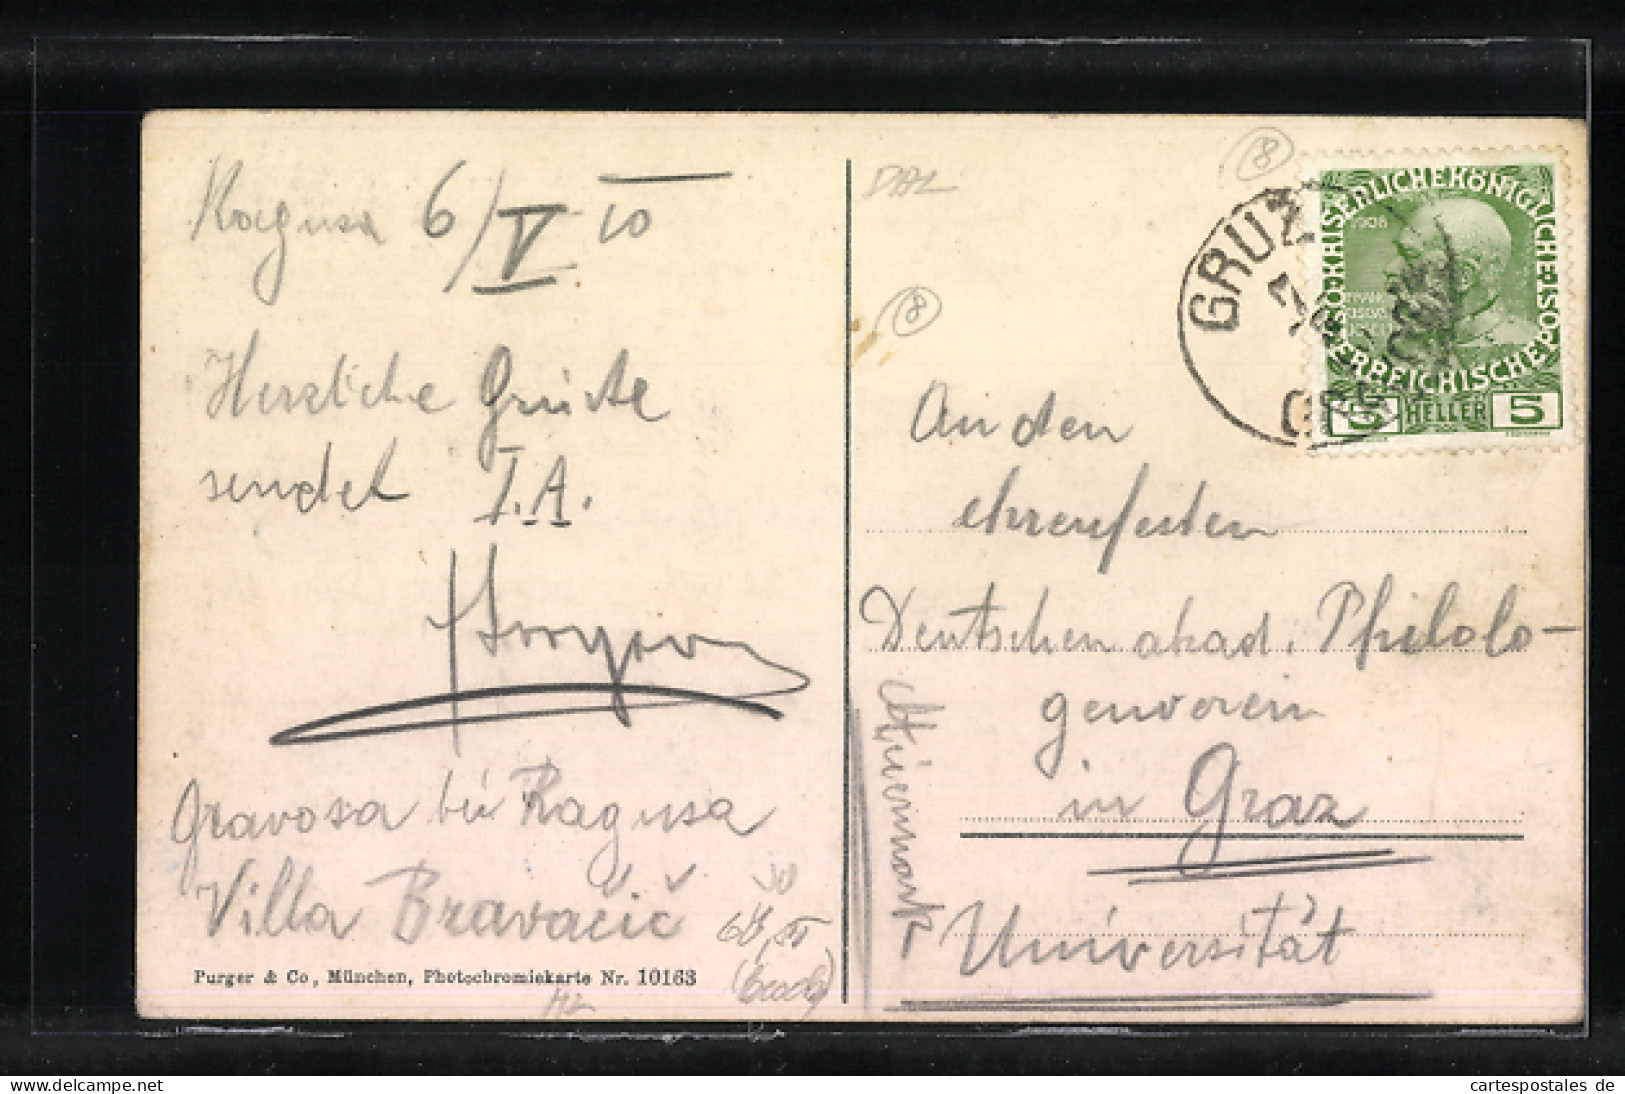 Ragusa 6/V 10
Herzliche Grüsse
sendet I. A.
Gravosa bei Ragusa
Villa Bravačić
Purger & Co, München, Photochromiekarte Nr. 10163
HL
DAL
8
8
GRUŽ
KAISERLICHE KÖNIGLICHE
ÖSTERREICHISCHE POST
1908
5 HELLER 5
An den
ehrenfesten
Deutschen akad. Philolo-
genverein
in Graz
Universität
Steiermark
Hamster-Auctions
cartespostales de